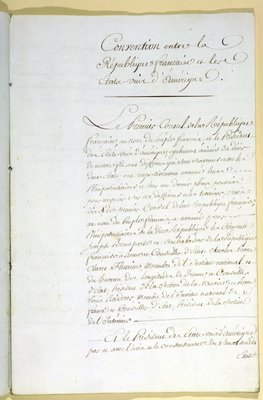 Convention entre la
République française et les
États unis d'Amérique.
Le Premier Consul de la République
française, au nom du Peuple français, et le Président
des États unis d'Amérique, également animés du désir
de mettre fin aux différens qui sont survenus entre les
deux États, ont respectivement nommé leurs
Plénipotentiaires et leur ont donné plein pouvoir
pour négocier sur ces différens et les terminer; c'est à
dire le Premier Consul de la République française,
au nom du Peuple français, a nommé pour
Plénipotentiaires de la dite République les Citoyens
Joseph Bonaparte ex Ambassadeur de la République
française à Rome et Conseiller d'État, Charles Pierre
Claret Fleurieu Membre de l'Institut national et
du Bureau des Longitudes de France et Conseiller
d'État, Président de la Section de la Marine, et Pierre
Louis Rœderer Membre de l'Institut national de
france et Conseiller d'État, Président de la Section
de l'Intérieur;
Et le Président des États unis d'Amérique,
par et avec l'avis et le consentement du Sénat des dits
États